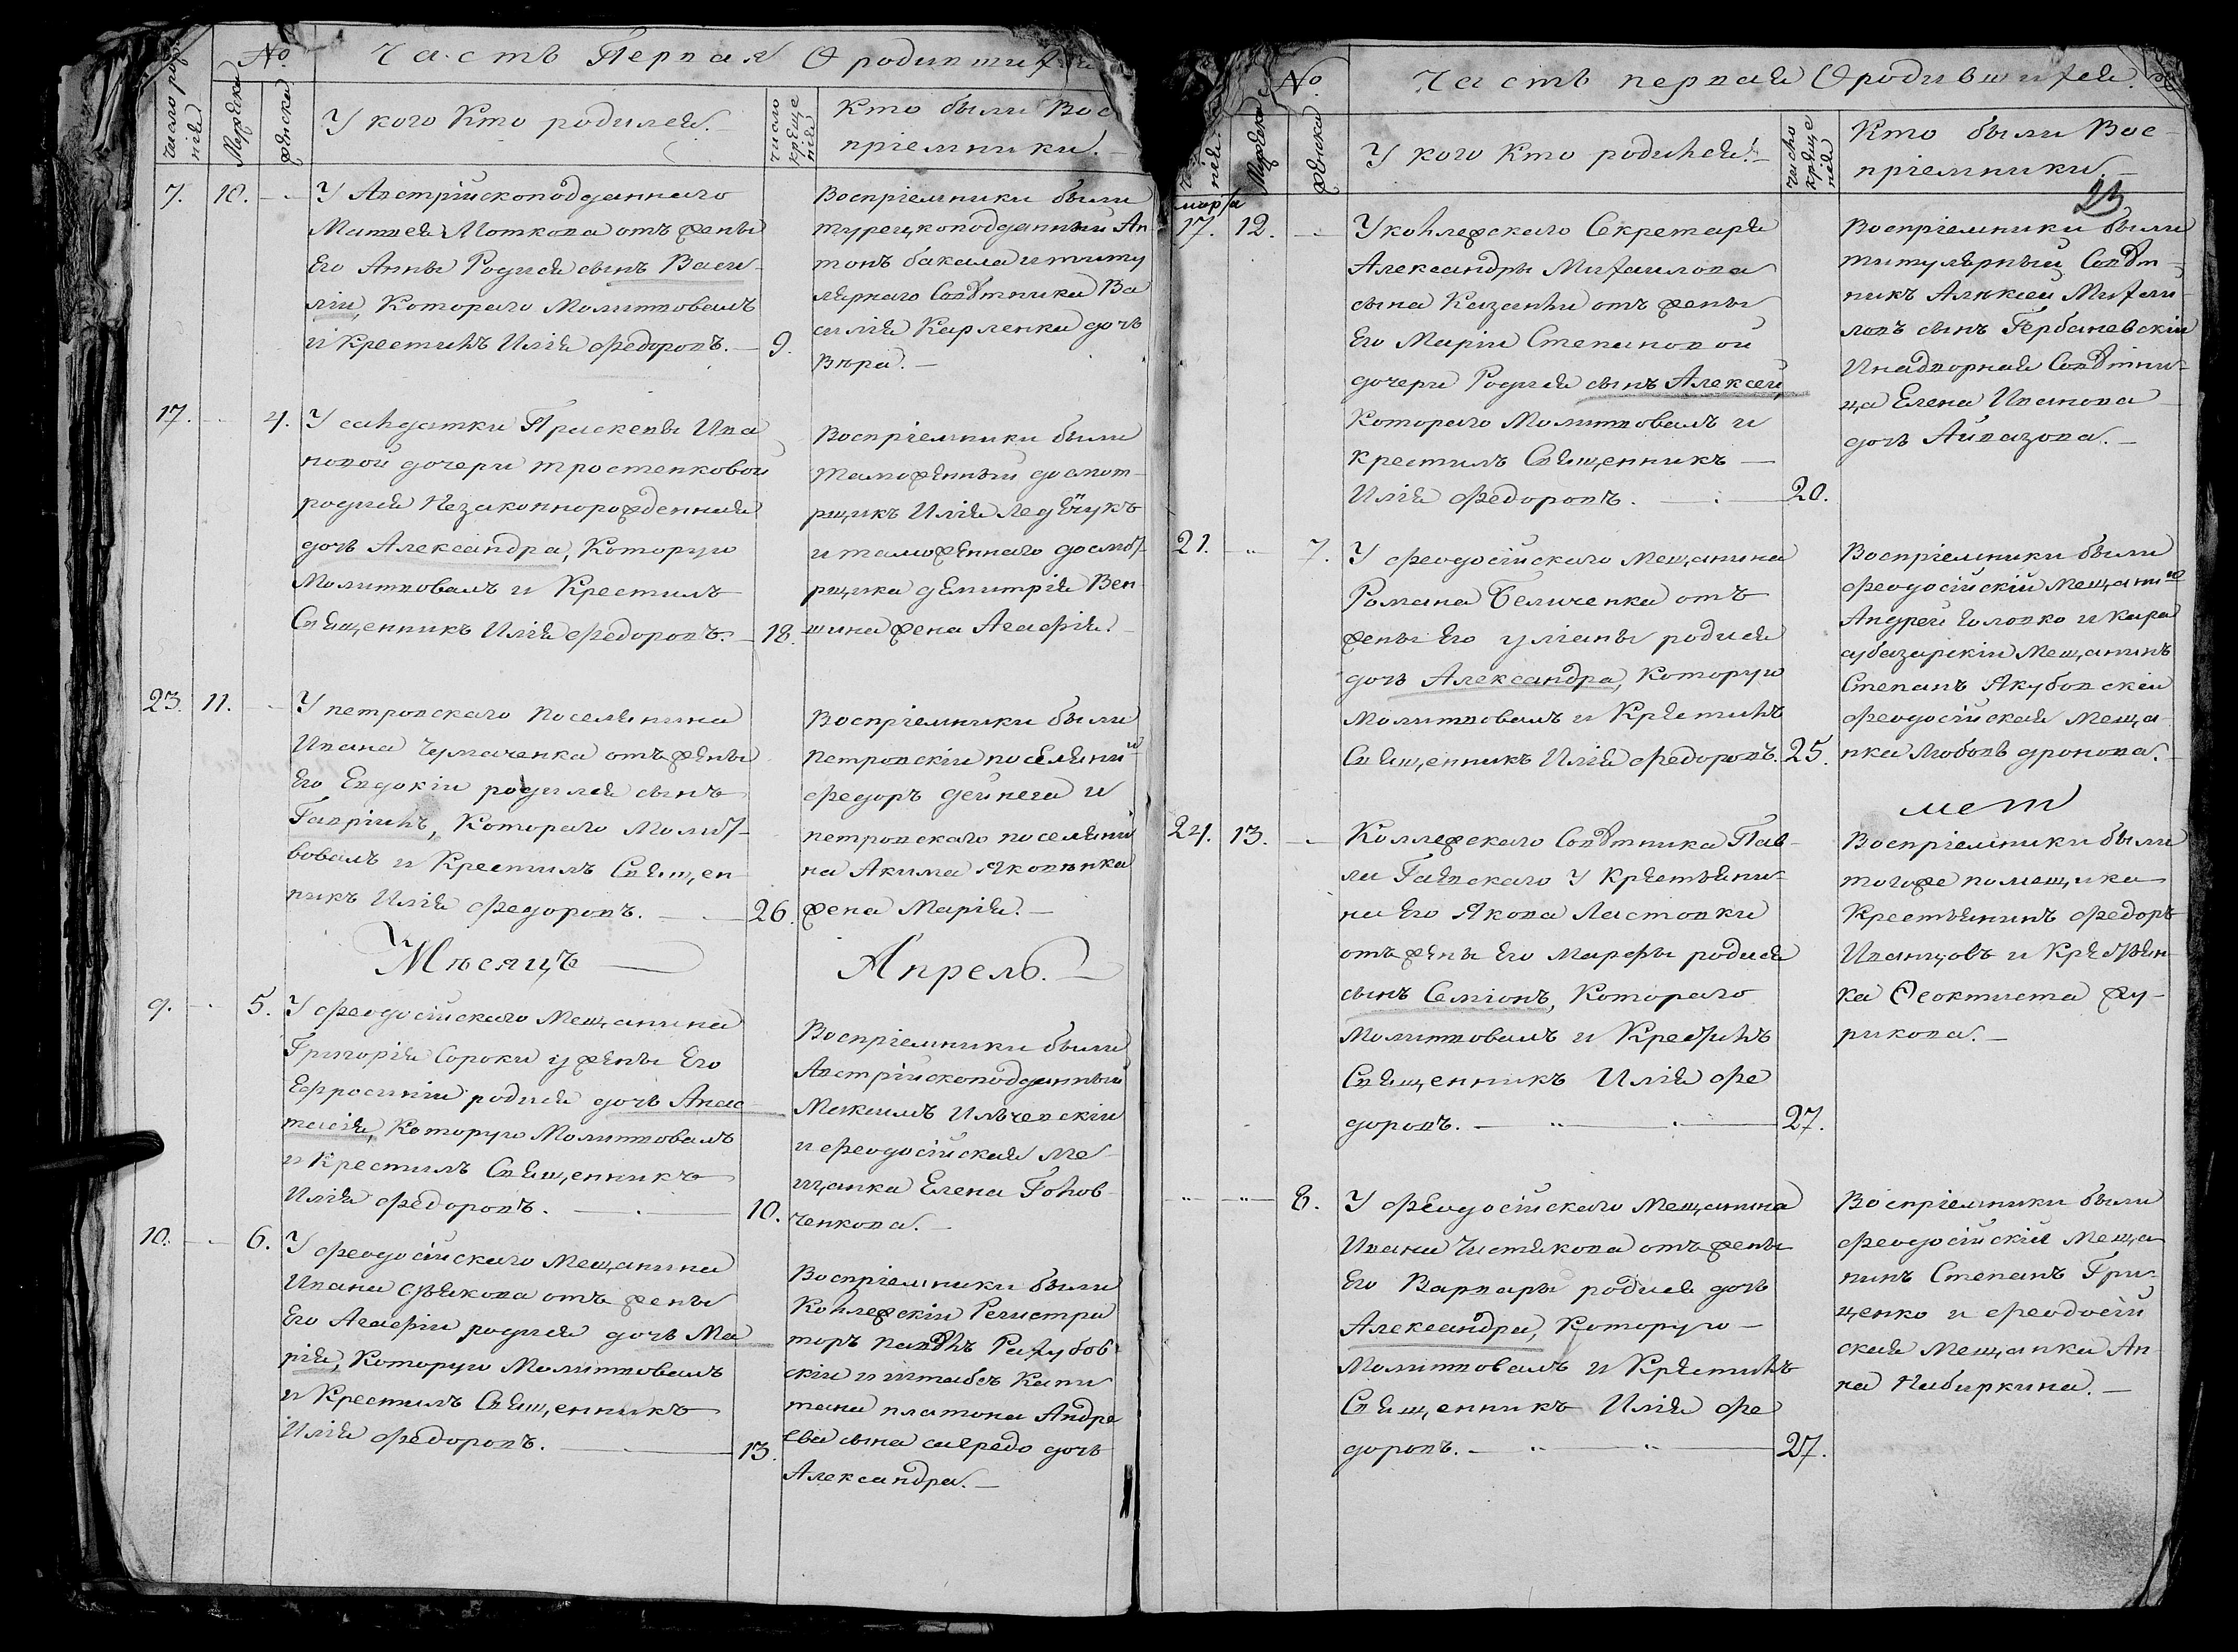 Часть Первая О родившихся
число рожде
нія
№
Мужеска
женска
У кого Кто родился.
число
креще
нія
Кто были Вос
пріемники.
7. 10.
У Австрійскоподданнаго
Матвея Моткова отъ жены
Его Анны Родися сынъ Васи-
лій, Котораго Молитвовалъ
и Крестилъ Илія Федоровъ. 9.
Воспріемники были
турецкоподданный Ан
тонъ бакала и титу
лярнаго Совѣтника Ва
силія Карленка дочь
Вѣра.
17. 4.
У салдатки Праскевы Ива
новой дочери тростенковой
родися Незаконнорожденная
дочь Александра, Которую
Молитвовалъ и Крестилъ
Священникъ Илія Федоровъ. 18.
Воспріемники были
таможенный досмот-
рщикъ Илія Ледѣчукъ
и таможеннаго досмот-
рщика димитрія Вен-
шина жена Агафія.
23. 11.
У петровскаго поселянина
Ивана Чумаченка отъ жены
Его Евдокіи родился сынъ
Гавріилъ, Котораго Молит-
вовалъ и Крестилъ Священ-
никъ Илія Федоровъ. 26.
Воспріемники были
петровскій поселянин
Федоръ дейнега и
петровскаго поселяни
на Акима Яковенка
жена Марія.
Мѣсяцъ Апрель.
9. 5.
У феодосійскаго Мещанина
Григорія Сороки у жены Его
Ефросиніи родися дочь Анас
тасія, Которую Молитвовалъ
и Крестилъ Священникъ
Илія Федоровъ. 10.
Воспріемники были
Австрійскоподданный
Максимъ Ильчевскій
и феодосійская Ме-
щанка Елена Голов-
ченкова.
10. 6.
У феодосійскаго Мещанина
Ивана
отъ жены
Его Агафіи родися дочь Ма
рія, Которую Молитвовалъ
и Крестилъ Священникъ
Илія Федоровъ. 13.
Воспріемники были
Коллежскій Регистра
торъ павелъ Рахубов-
скій и штабсъ Капи
тана платона Андре
ева сына
дочь
Александра.
№
Часть первая О родившихся.
Мужеска
женска
У кого Кто родился.
число
креще
нія
Кто были Вос-
пріемники.
23
марта
17. 12.
У коллежскаго Секретаря
Александры Михаилова
сына Казанли отъ жены
Его Маріи Степановой
дочери Родися сынъ Алексей,
Котораго Молитвовалъ и
крестилъ Священникъ
Илія Федоровъ. 20.
Воспріемники были
титулярный Совѣт-
никъ Алексей Михаи-
ловъ сынъ Гербаневскій
И надворная Совѣтни-
ца Елена Иванова
дочь Айвазова.
21. 7.
У феодосійскаго Мещанина
Романа Величенка отъ
жены Его улианы родися
дочь Александра, Которую
Молитвовалъ и Крестилъ
Священникъ Илія Федоровъ. 25.
Воспріемники были
феодосійскій Мещанин
Андрей Головко и Кара
субазарскій Мещанинъ
Степанъ Якубовскій
феодосійская Меща-
нка Любовь дронова.
24. 13.
Коллежскаго Совѣтника Пав-
ла Гаевскаго У Крестьяни-
на Его Якова Ластовки
отъ жены Его Марфы родися
сынъ Семіонъ, Котораго
Молитвовалъ и Крестилъ
Священникъ Илія Фе
доровъ. 27.
Воспріемники были
тогоже помещика
Крестьянинъ Федоръ
Иванцовъ и Крестьян-
ка Ѳеоктиста Жу-
рикова.
8.
У Феодосійскаго Мещанина
Ивана Чистякова отъ жены
Его Варвары родися дочь
Александра, Которую
Молитвовалъ и Крестилъ
Священникъ Илія Фе
доровъ. 27.
Воспріемники были
феодосійскій Меща
нинъ Степанъ Гри-
ценко и феодосій
ская Мещанка Ан-
на Набиркина.